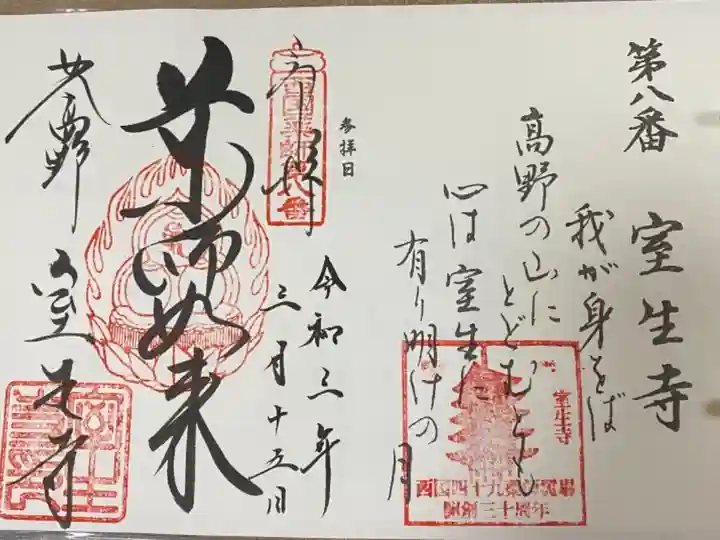 第八番
室生寺
我が身をば
高野の山に
とどむとも
心は室生に
有り明けの月
室生寺
西国四十九薬師霊場
開創三十周年
参拝日
奉拝
西国薬師第八番
令和三年
三月十五日
薬師如来
女人高野
室生寺